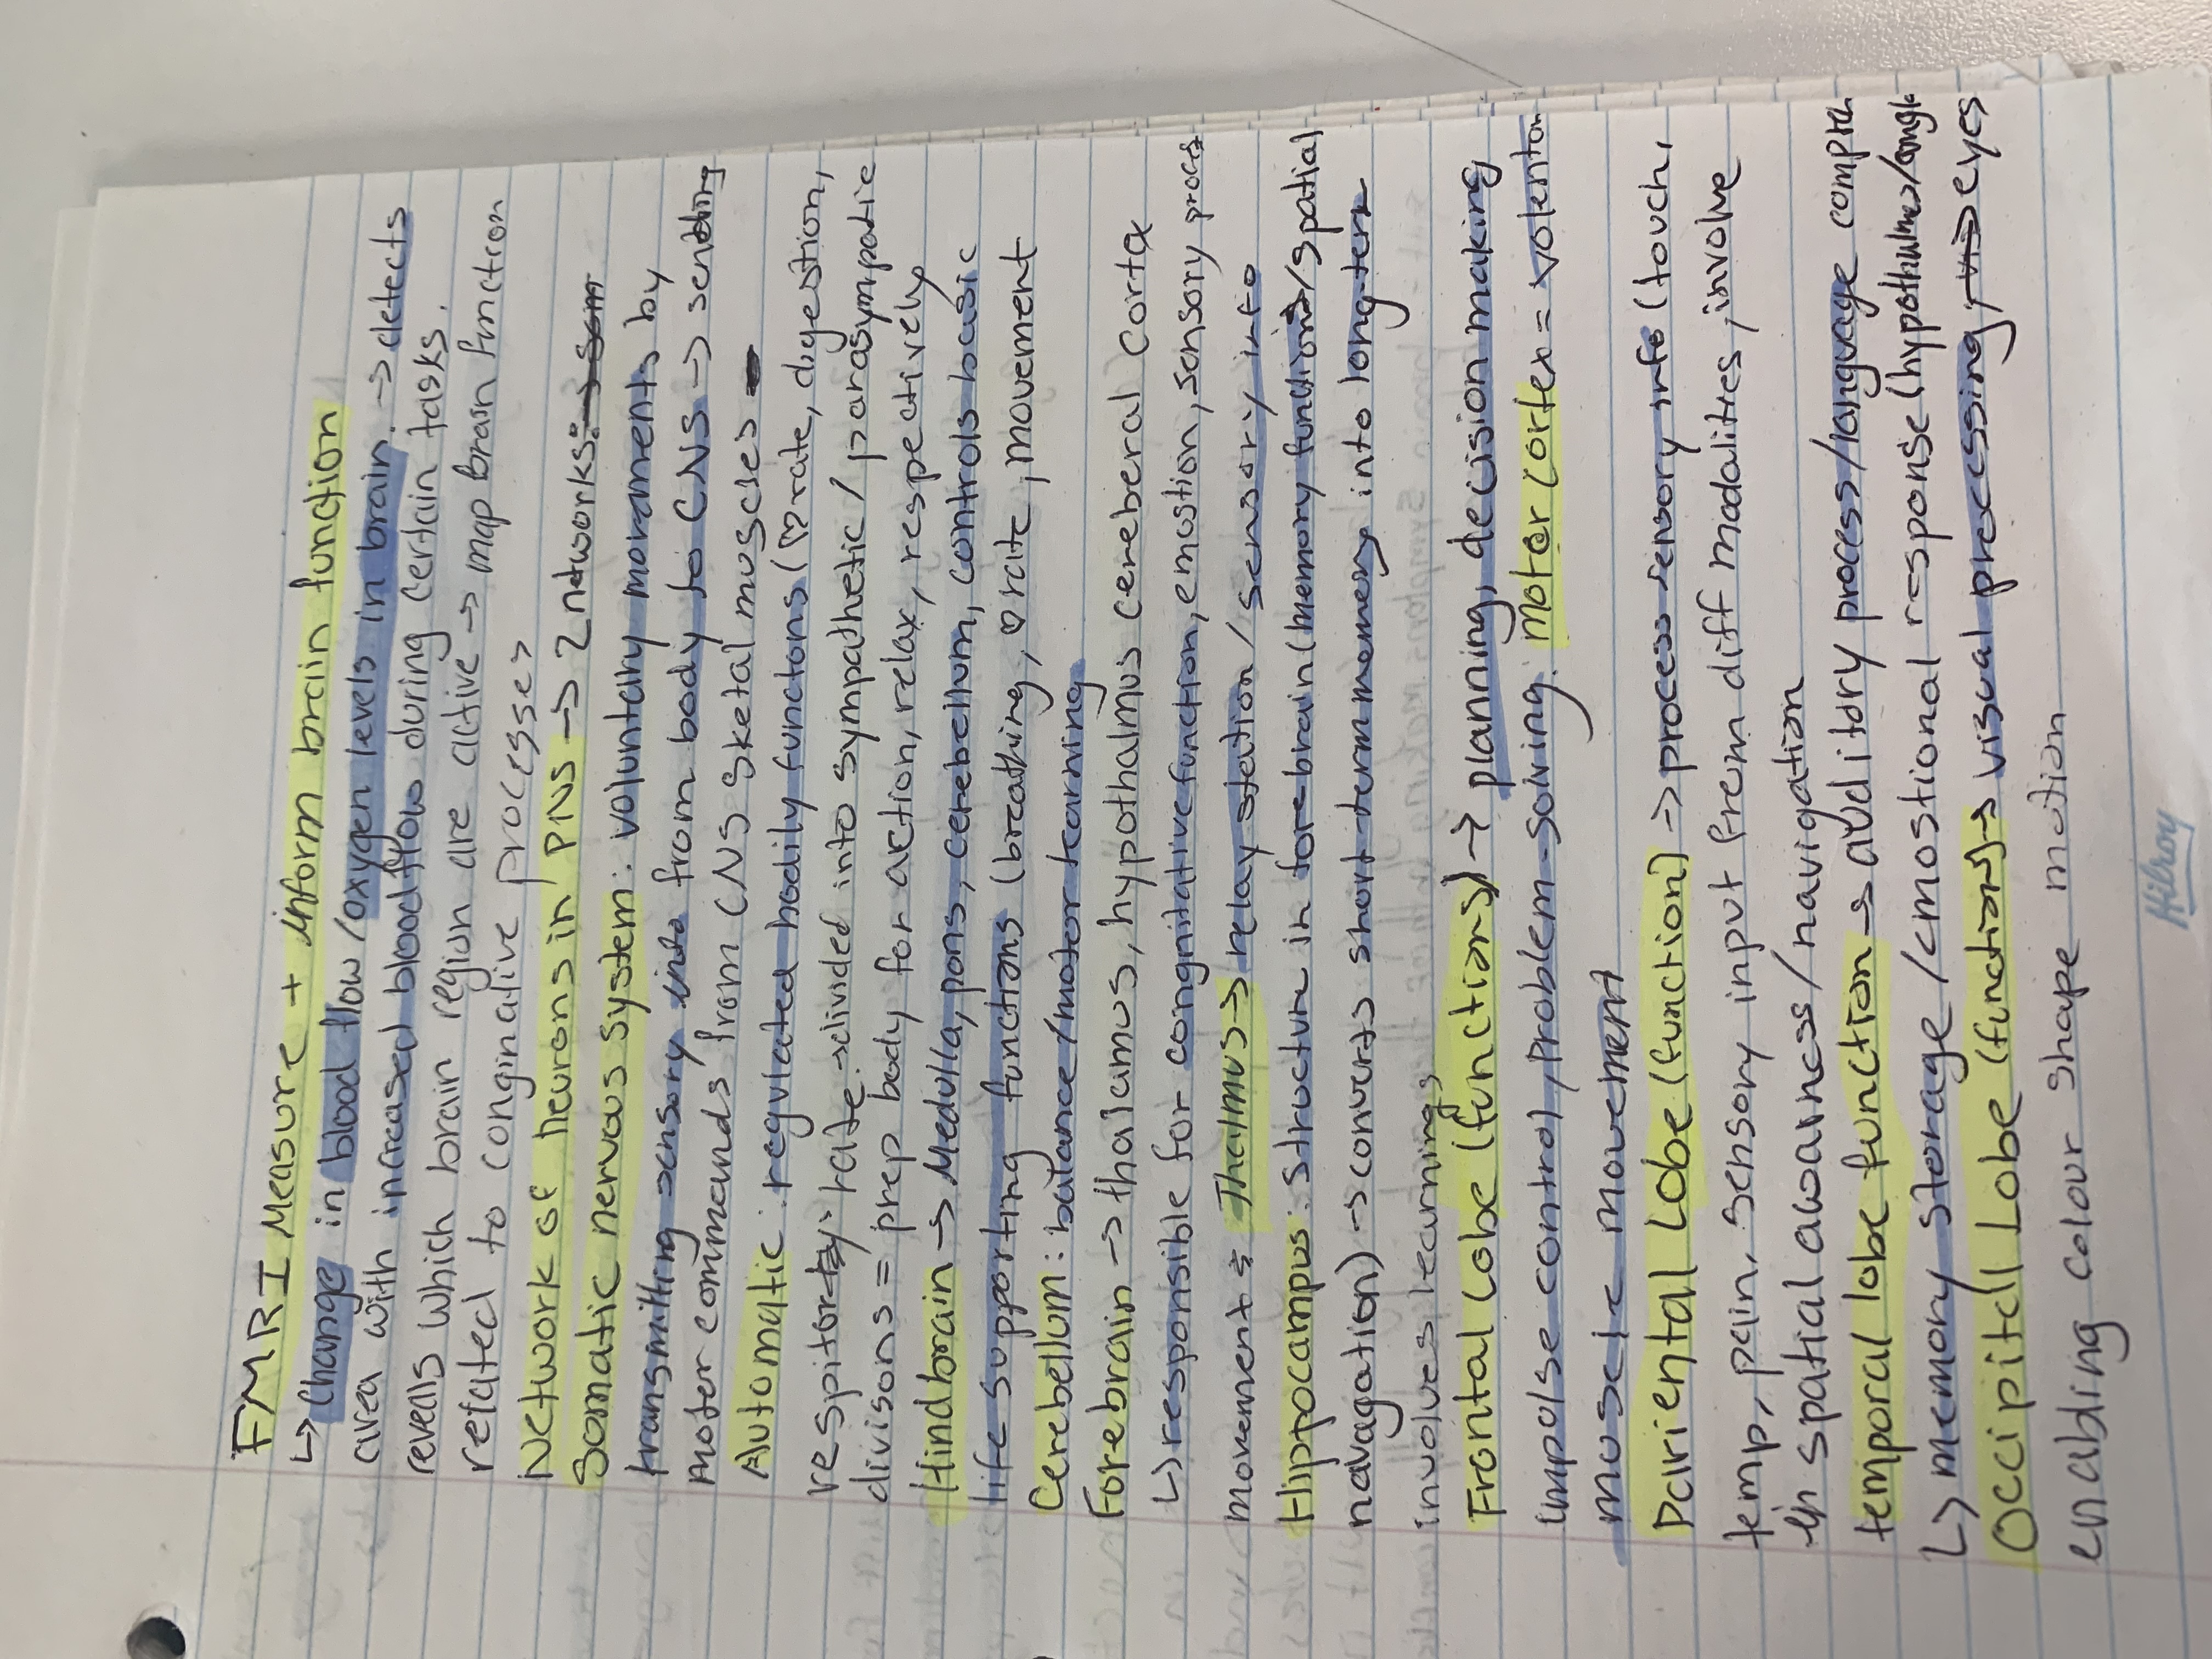 FMRI Measure + inform brain function
↳ Change in blood flow/oxygen levels in brain. → detects
area with increased bloodflow during certain tasks.
reveals which brain region are active → map brain function
related to conginative processes
Network of neurons in PNS → 2 networks: → som
Somatic nervous system: voluntary movements by
transmitting sensory info from body to CNS → sending
moter commands from CNS sketal muscles
Automatic: regulated bodily functons (♡ rate, digestion,
respitory rate → divided into sympathetic / parasympatic
divisons = prep body for action, relax, respectively
Hindbrain → Medulla, pons, cerebellum, controls basic
life supporting functions (breathing, ♡ rate, movement
Cerebellum: balance/motor learning
Forebrain → thalamus, hypothalmus cereberal cortx
↳ responsible for congnitative function, emostion, sensory process
movement & Thalmus → relay station / sensory info
Hippocampus: structure in forebrain (memory functions/spatial
navagation) → converts short-term memory into long-term
involves learnings
Frontal Lobe (functions) → planning, decision making
impulse control, problem-solving. motor cortex = volentary
muscle movement
Pariental Lobe (function) → process sensory info (touch,
temp, pain, sensory input from diff modalities, involve
in spatial awarness/navigation
temporal lobe function → auditory process/language
↳ memory storage/emostional response
Occipitall Lobe (functions) → visual processing, → eyes
enabling colour shape motion
Hilroy